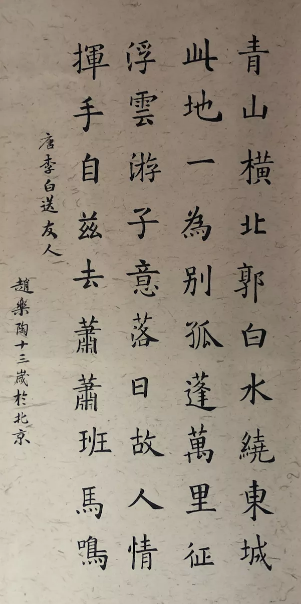 青山橫北郭白水繞東城
此地一為別孤蓬萬里征
浮雲游子意落日故人情
揮手自兹去蕭蕭班馬鳴
唐李白送友人
趙樂陶十三歲於北京